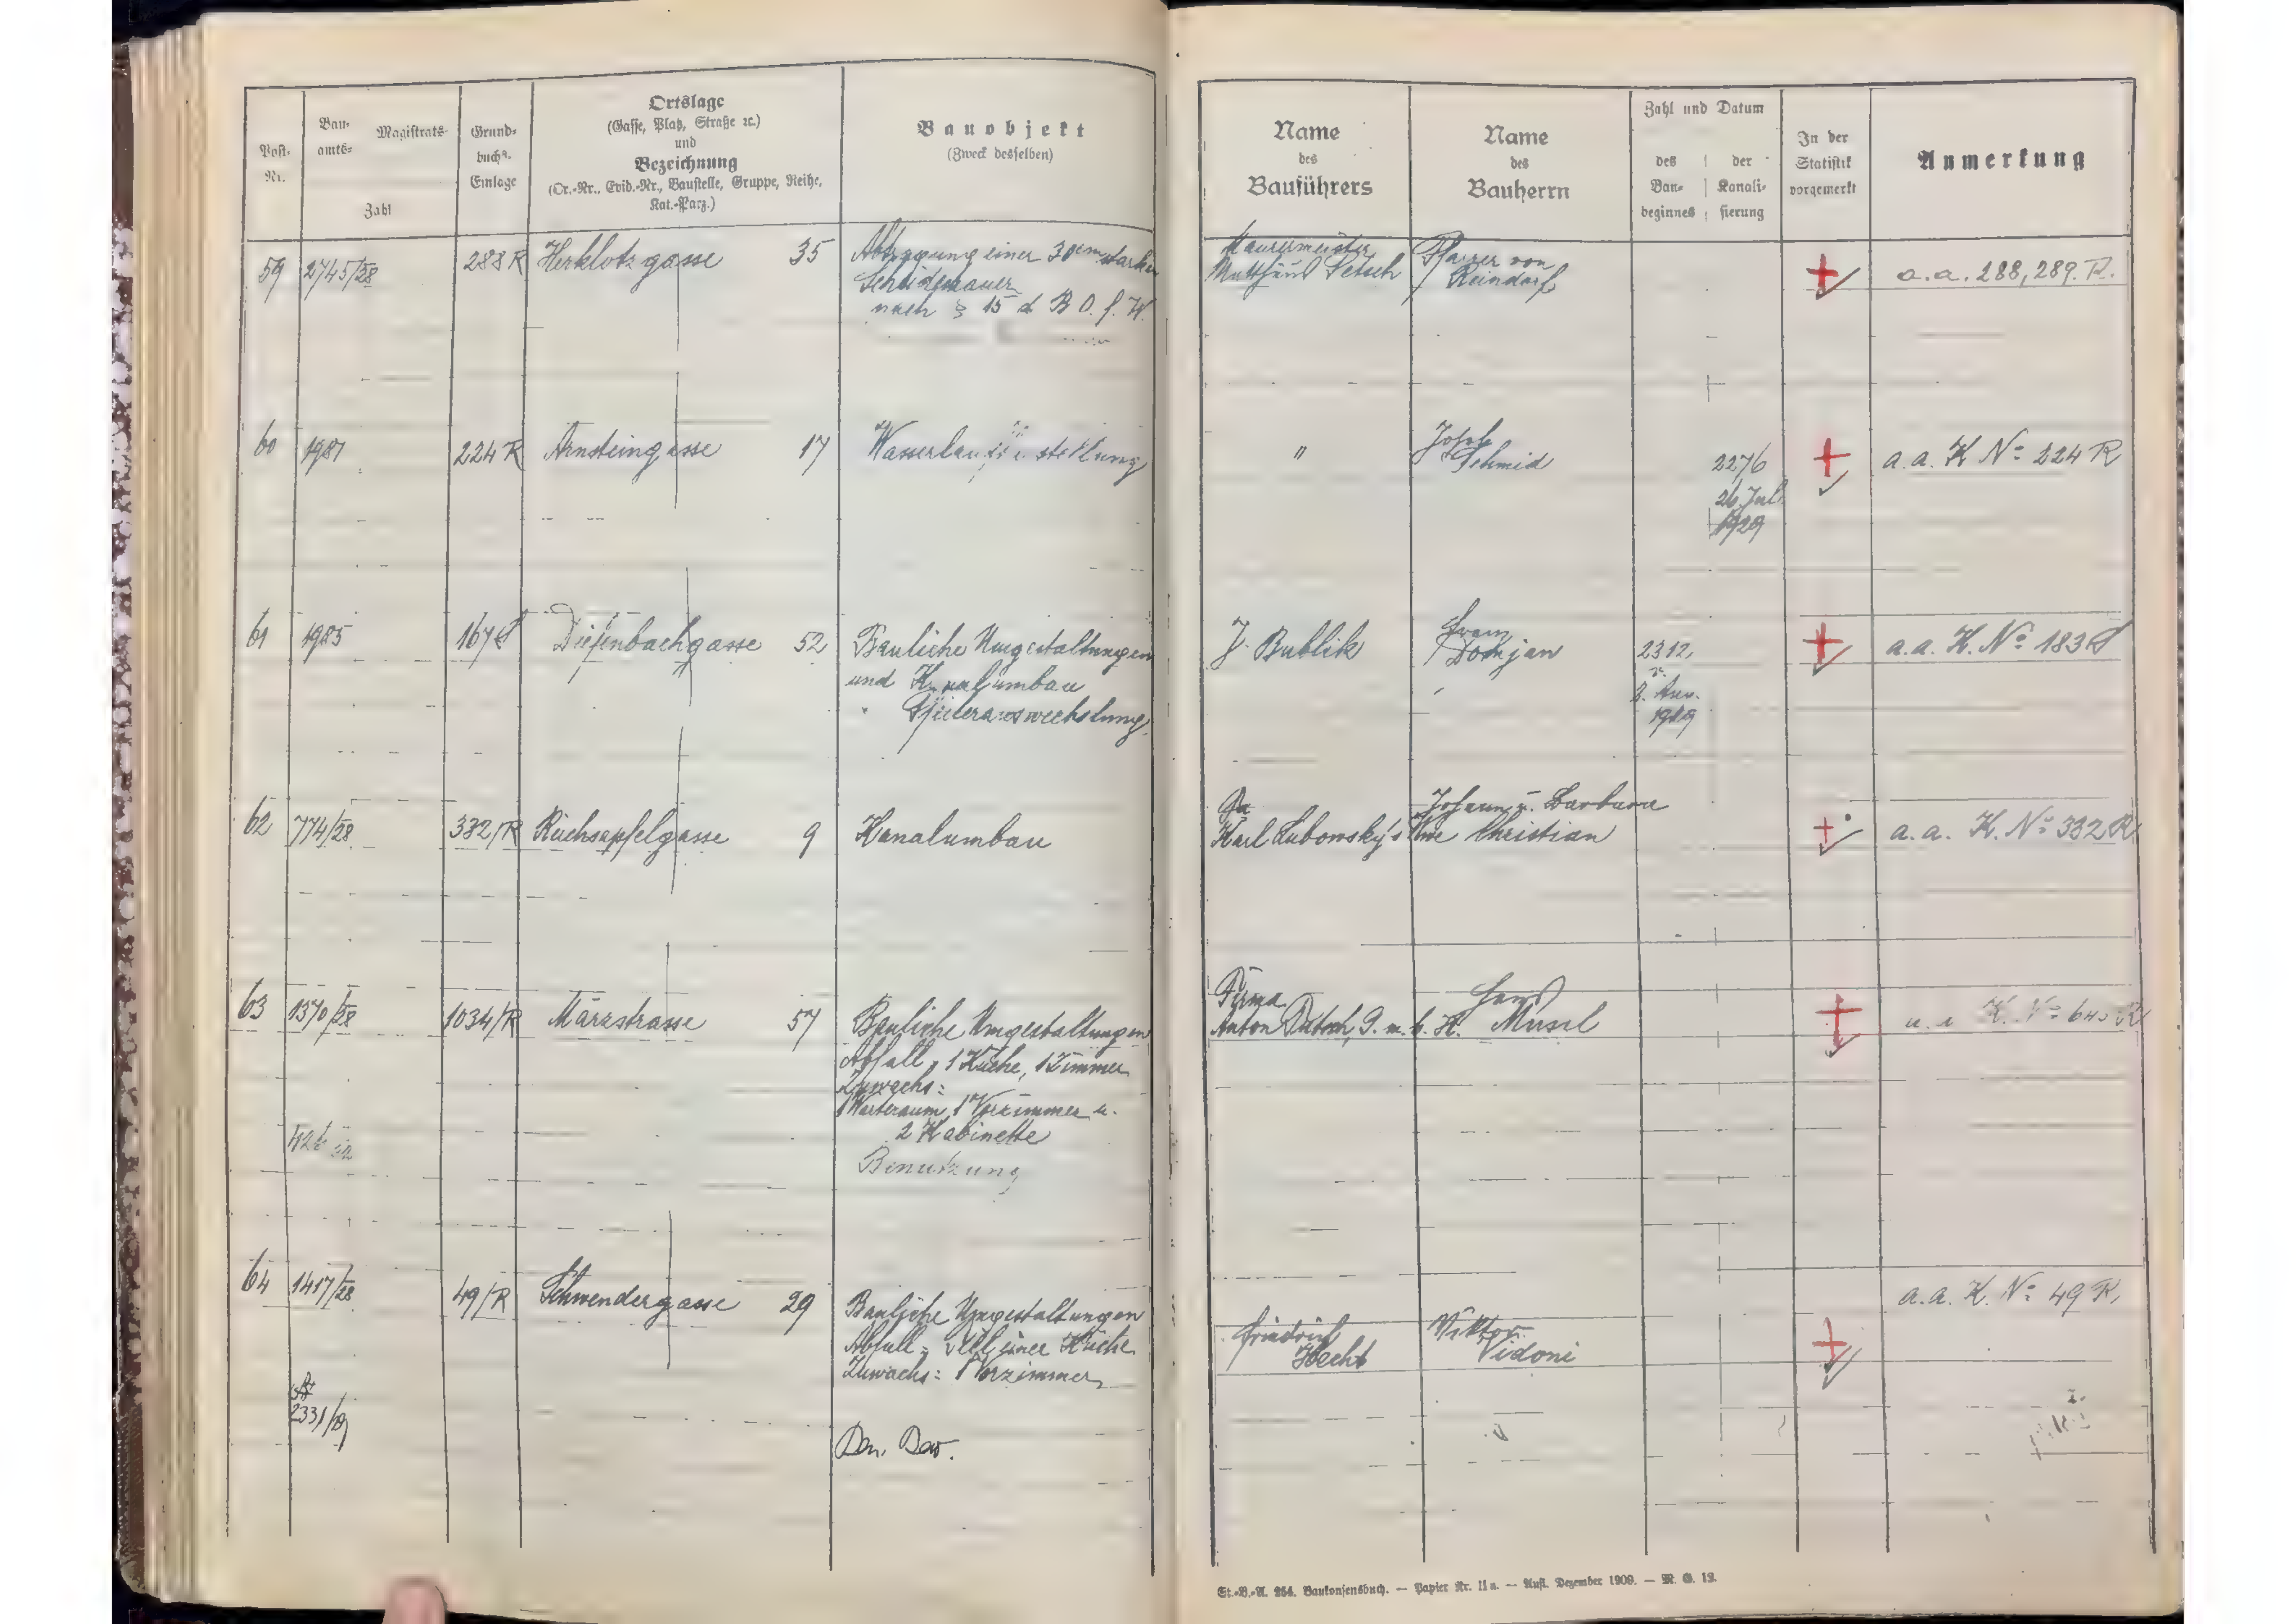 Post-
Nr.
Bau-
amts-
Magistrats-
Zahl
Grund-
buchs-
Einlage
Ortslage
(Gasse, Platz, Straße ꝛc.)
und
Bezeichnung
(Or.-Nr., Evid.-Nr., Baustelle, Gruppe, Reihe,
Kat.-Parz.)
Bauobjekt
(Zweck desselben)
Name
des
Bauführers
Name
des
Bauherrn
Zahl und Datum
des
Bau-
beginnes
der
Kanali-
sierung
In der
Statistik
vorgemerkt
Anmerkung
59 2745/28 288 R Herklotzgasse 35
Abtragung einer 30 cm starken
Scheidemauer
nach § 15 d. B O. f. W.
Maurermeister
Matthäus Petsch
Pfarrer von
Reindorf
a.a. 288, 289. R.
60 1987 224 R Arnsteingasse 17
" Josef
Schmid
2276
26. Jul.
1929
a.a. K Nº 224 R
61 1985 167 S Diefenbachgasse 52
Bauliche Umgestaltungen
und Kanalumbau
J. Bublik
Franz
Domjan
2312
1929
a.a. K. Nº 183 S
62 774/28 332/R Reichsapfelgasse 9 Kanalumbau
Fa
Karl Lubowsky's Wwe
Johann u. Barbara
Christian
a.a. K. Nº 332 R
63 1370/28 1034/R Märzstrasse 57
Bauliche Umgestaltungen
Abfall, 1 Küche, 1 Zimmer
Zuwachs:
1 Warteraum, 1 Vorzimmer u.
2 Kabinette
Benützung
Firma
Anton G. m. b. H.
Hans
Musil
K. Nº 645 R
64 1417/28 49/R Schwendergasse 29
Bauliche Umgestaltungen
Abfall = Teil einer Küche
Zuwachs: 1 Vorzimmer
2331/29
Ben. Bew.
Friedrich
Hecht
Viktor
Vidoni
a.a. K. Nº 49 R.
St.-B.-A. 254. Baukonsensbuch. — Papier Nr. 11 a. — Aufl. Dezember 1909. — M. G. 12.